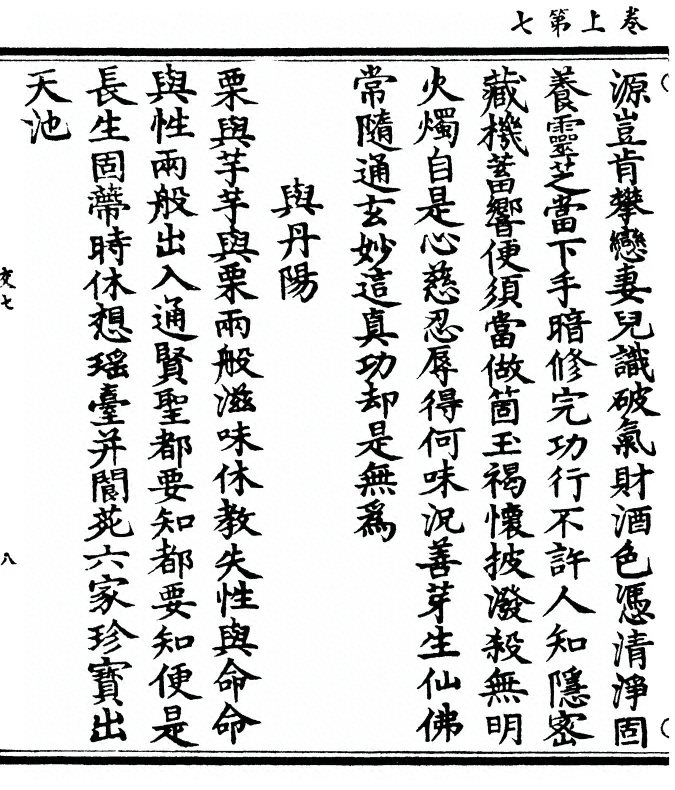 卷上第七
源豈肯攀戀妻兒識破氣財酒色憑清淨固
養靈芝當下手暗修完功行不許人知隱密
藏機蓄響便須當做箇玉褐懷披潑殺無明
火燭自是心慈忍辱得何味況善芽生仙佛
常隨通玄妙這真功却是無為
與丹陽
栗與芋芋與栗兩般滋味休教失性與命命
與性兩般出入通賢聖都要知都要知便是
長生固蔕時休想瑤臺并閬苑六家珍寶出
天池
交七
八